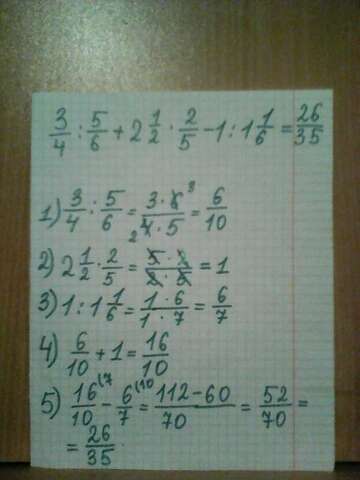 3/4 : 5/6 + 2 1/2 · 2/5 - 1 : 1 1/6 = 26/35
1) 3/4 : 5/6 = 3·6³/4₂·5 = 6/10
2) 2 1/2 · 2/5 = 5·2/2·5 = 1
3) 1 : 1 1/6 = 1·6/1·7 = 6/7
4) 6/10 + 1 = 16/10
5) 16/10 (7 - 6/7 (10 = 112-60/70 = 52/70 =
= 26/35